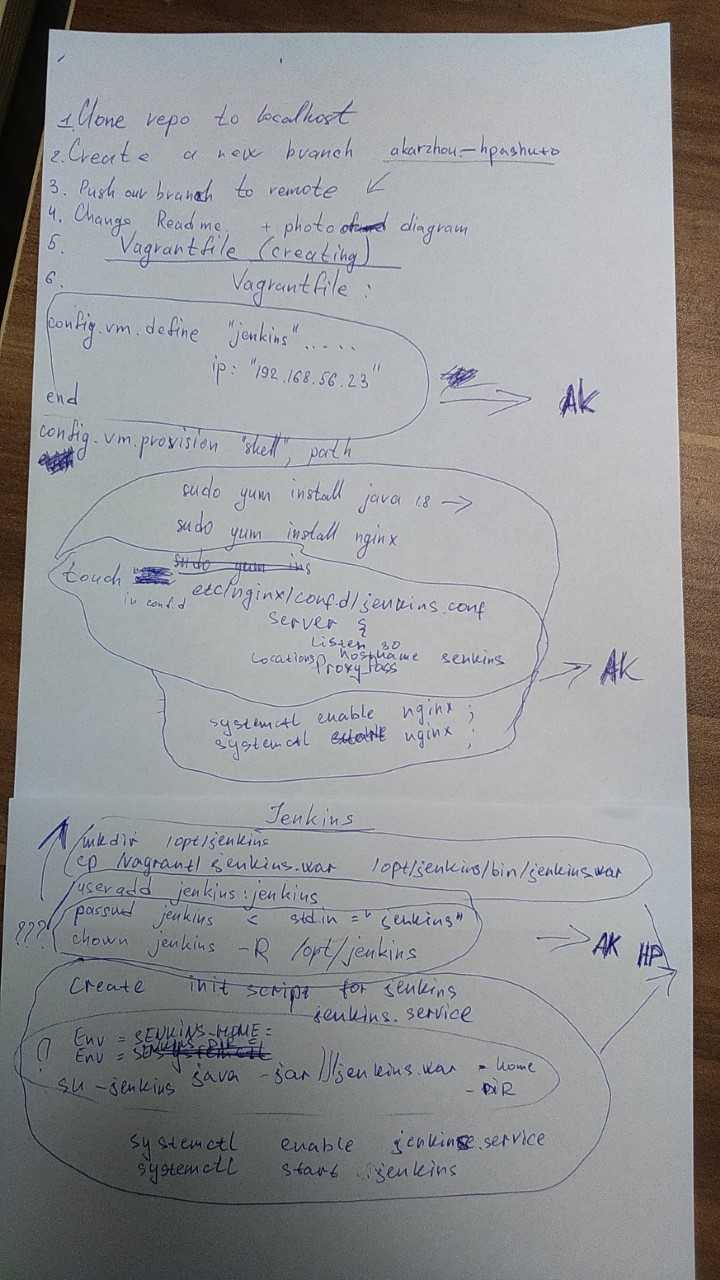 1. Clone repo to localhost
2. Create a new branch akarzhou-hpashuto
3. Push our branch to remote
4. Change Readme + photo diagram
5. Vagrantfile (creating)
6. Vagrantfile :
config.vm.define "jenkins" .....
ip: "192.168.56.23"
end
AK
config.vm.provision "shell", path
sudo yum install java 1.8 →
sudo yum install nginx
sudo yum ins
touch etc/nginx/conf.d/jenkins.conf
in conf.d
Server {
Listen 80
Location hostname jenkins
Proxy_pass
AK
systemctl enable nginx ;
systemctl start nginx ;
Jenkins
mkdir /opt/jenkins
cp /vagrant/jenkins.war /opt/jenkins/bin/jenkins.war
useradd jenkins:jenkins
passwd jenkins < stdin = "jenkins"
???
chown jenkins -R /opt/jenkins
AK HP
Create init script for jenkins
jenkins.service
Env = JENKINS_HOME =
Env = JENKINS_DIR =
su - jenkins java -jar //jenkins.war - home
- DIR
systemctl enable jenkins.service
systemctl start jenkins